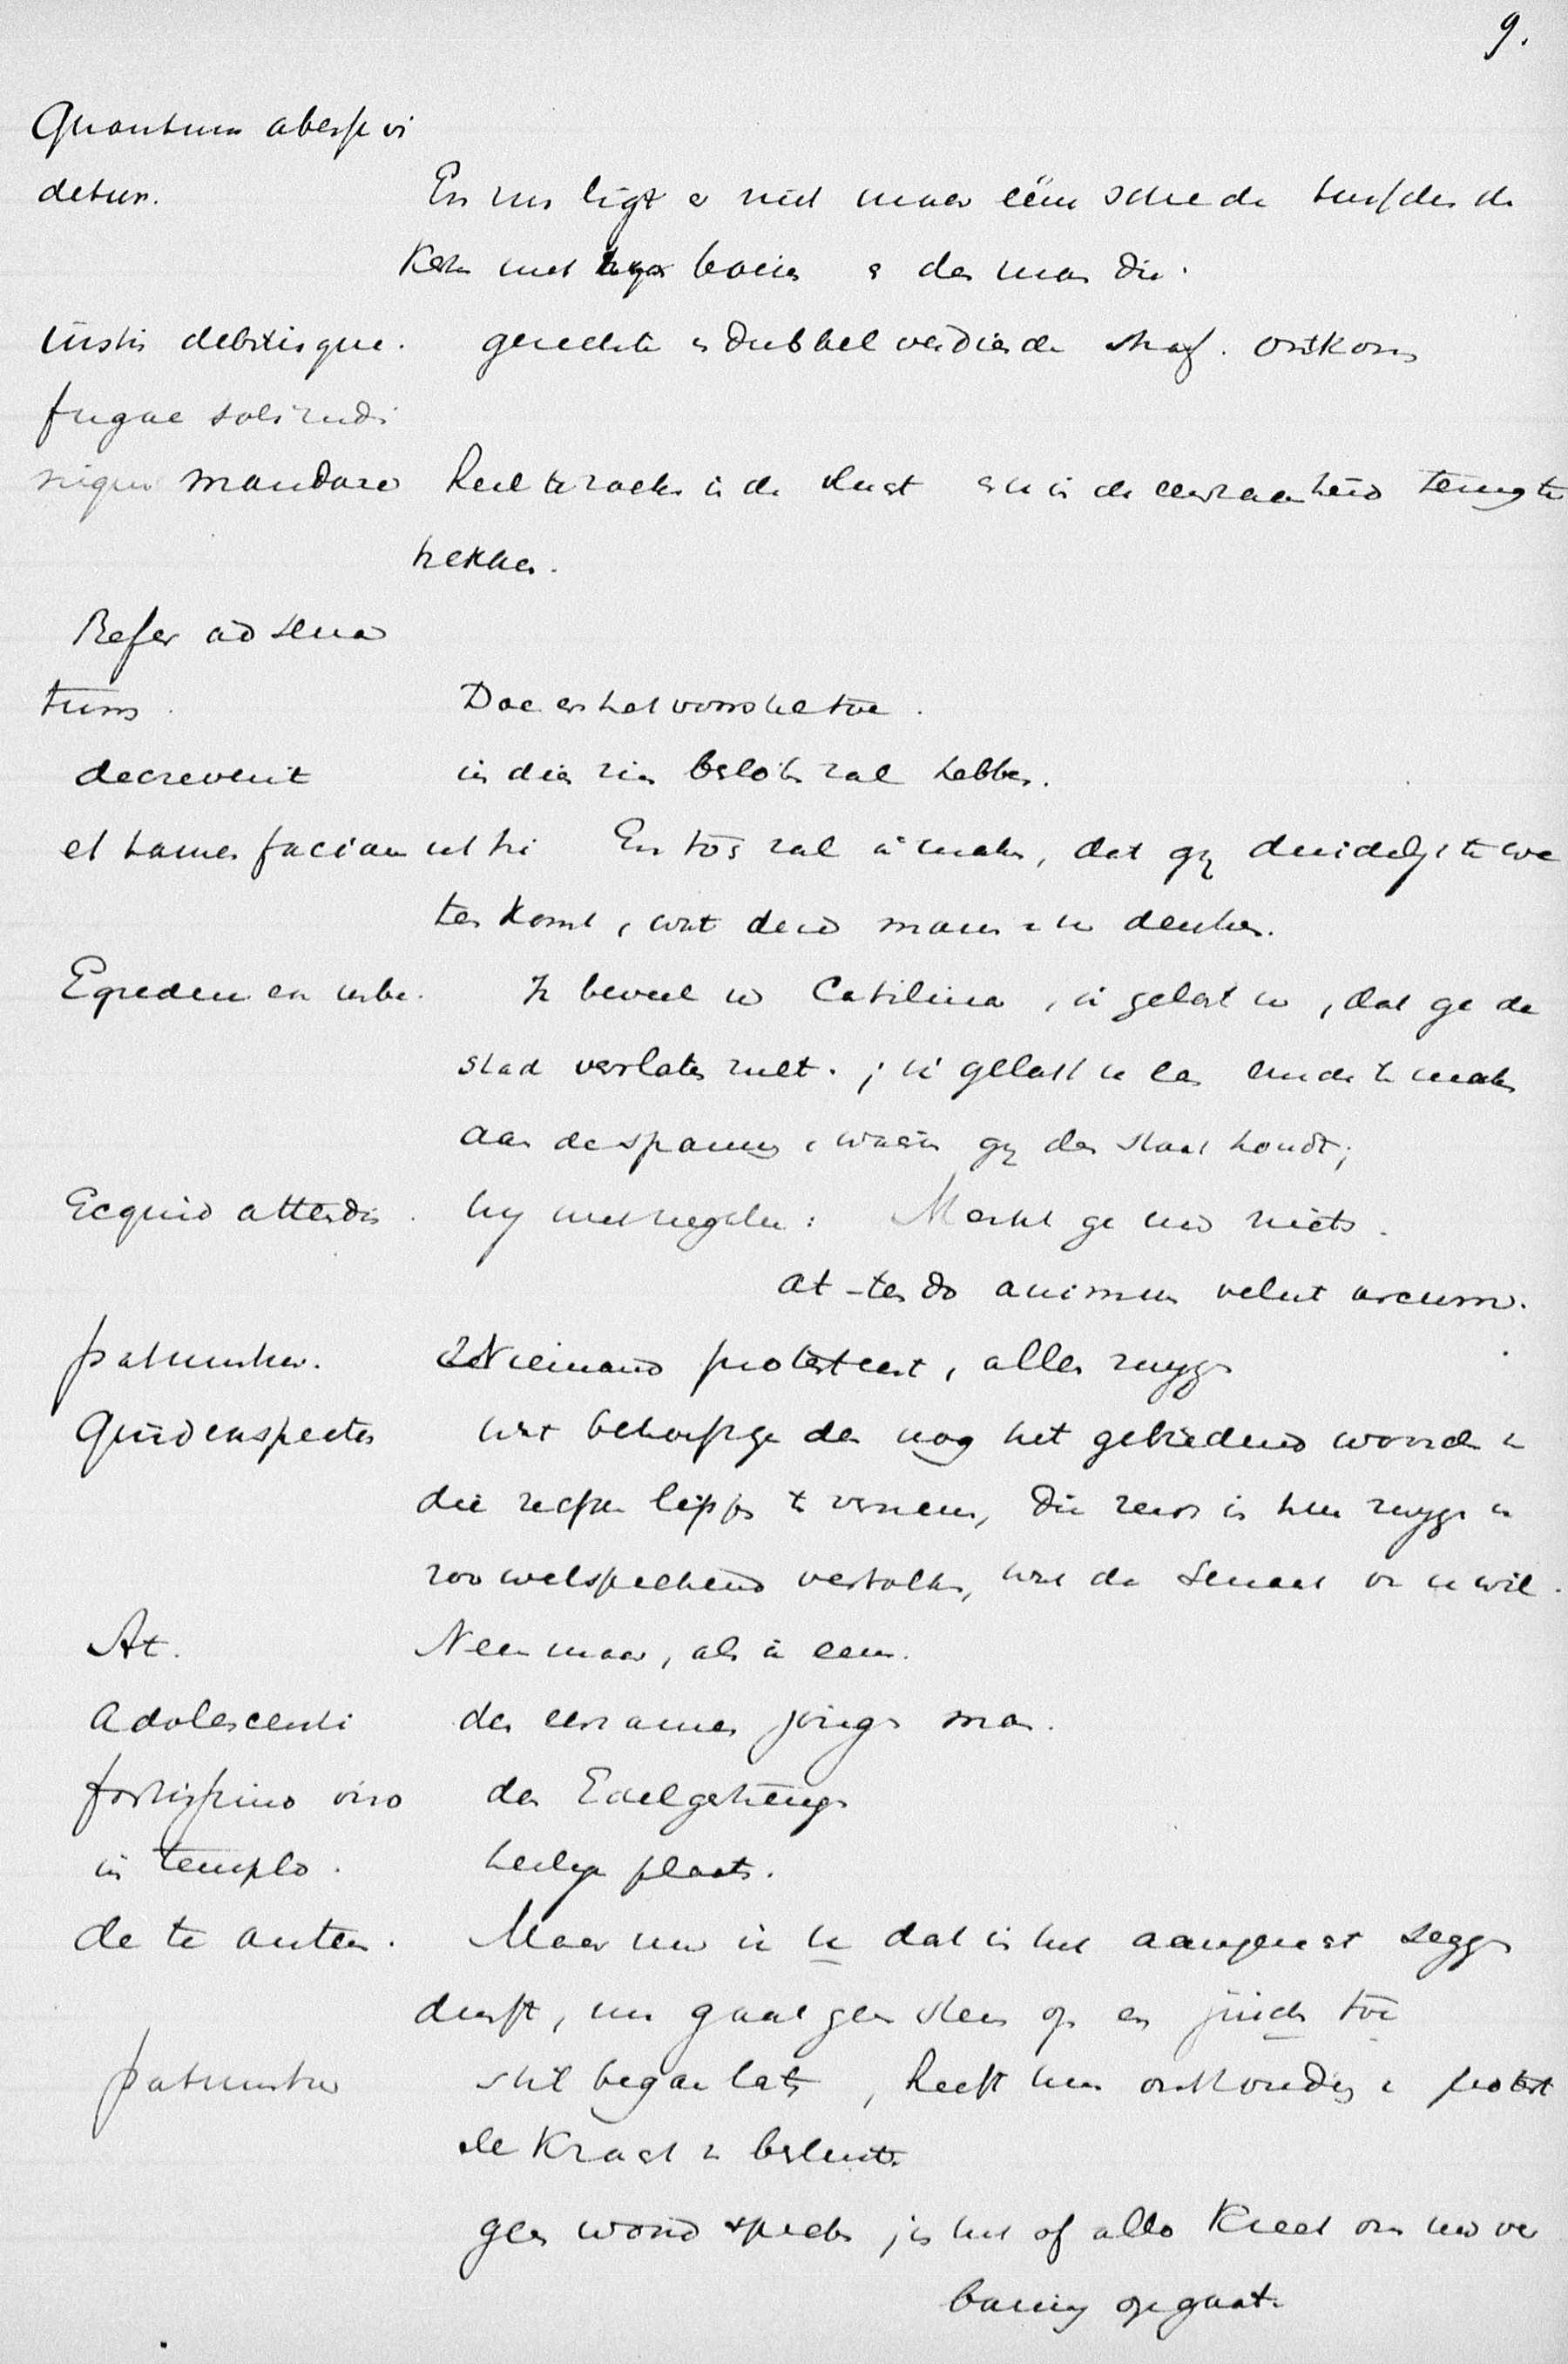 9.
Quantum abesse vi
detur. En nu ligt er niet maar één schrede tusschen de
Kerker met boeien en den man die.
iustis debitisque. gerechte en dubbel verdiende straf. ontkom
fugae solitudi
nique mandare heil te zoeken in de vlucht en u in de eenzaamheid terug te
trekken.
Refer ad sena
tum. Doe er het voorstel toe.
decreverit in dien zin besloten zal hebben.
et tamen faciam ut hi En tóch zal ik maken, dat gij duidelijk te we
ten komt, wat deze mannen van u denken.
Egredere ex urbe. Ik beveel u Catilina, ik gelast u, dat ge de
stad verlaten zult. ; ik gelast u een einde te maken
aan de spanning, waarin gij den staat houdt;
Ecquid attendis. hij met negatie: Merkt ge nu niets.
at-tendo animum velut arcum.
patiuntur. Niemand protesteert, allen zwijgen
Quid exspectas wat behoeft ge dan nog het gebiedend woord van
die zelfde lippen te vernemen, die reeds in hun zwijgen u
zoo welsprekend vertolken, wat de Senaat van u wil.
At. Neen maar, als ik eens.
Adolescenti den eerzamen jongen man.
fortissimo viro den Edelgestrengen
in templo. heilige plaats.
de te autem. Maar nu ik u dat in het aangezicht zeggen
durft, nu gaat geen stem op en juicht toe
patiuntur stil begaan laten, heeft hun onthouding van protest
de kracht van besluit.
geen woord spreken, is het of aller kreet om uw ver
banning opgaat.